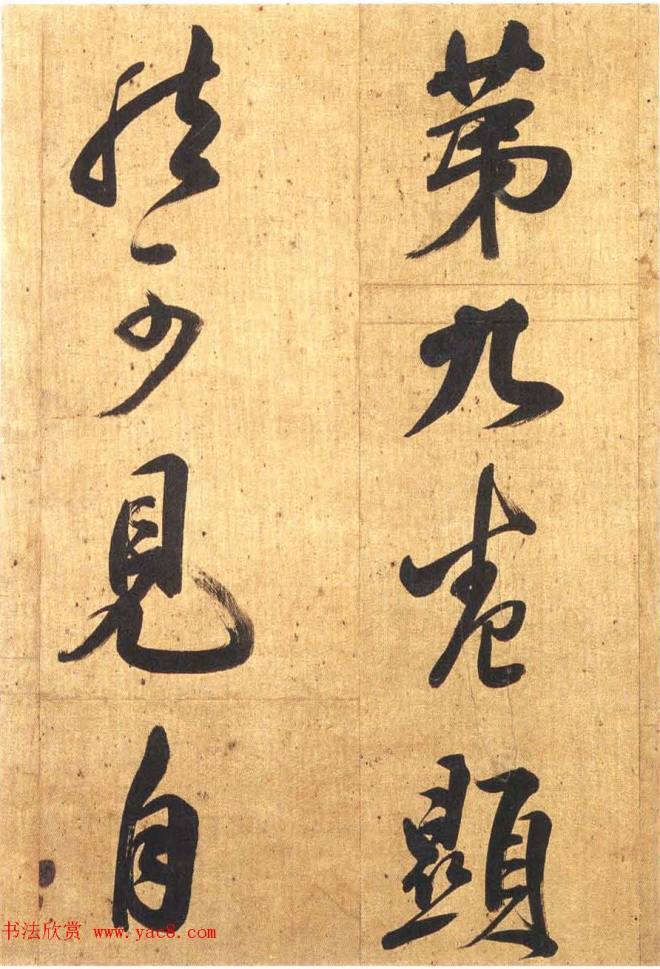 第九卷顯
然可見自
书法欣赏 www.yac8.com